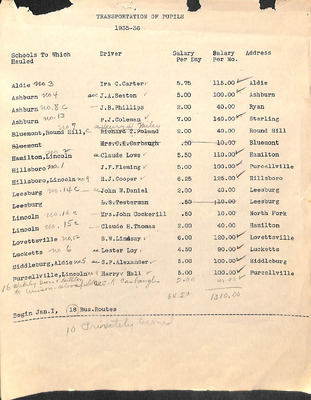 TRANSPORTATION OF PUPILS
1935-36
Schools To Which Hauled Driver Salary Per Day Salary Per Mo. Address
Aldie no 3 Ira C.Carter 5.75 115.00 Aldie
Ashburn no 4 J.A.Seaton 5.00 100.00 Ashburn
Ashburn no. 8 C J.B.Phillips 2.00 40.00 Ryan
Ashburn no. 13 F.J.Coleman 7.00 140.00 Sterling
Bluemont,Round Hill, no 9 Richard T.Poland 2.00 40.00 Round Hill
Bluemont Mrs.C.E.Carbaugh .50 10.00 Bluemont
Hamilton,Lincoln no. 2 Claude Lowe 5.50 110.00 Hamilton
Hillsboro no. 1 J.F.Fleming 5.00 100.00 Purcellville
Hillsboro,Lincoln no 9 H.J.Cooper 6.25 125.00 Hillsboro
Leesburg no. 14 C John W.Daniel 2.00 40.00 Leesburg
Leesburg L.S.Testerman .50 10.00 Leesburg
Lincoln no. 16 c Mrs.John Cockerill .50 10.00 North Fork
Lincoln no. 15 c Claude H.Thomas 2.00 40.00 Hamilton
Lovettsville no. 12 S.W.Lindsay 6.00 120.00 Lovettsville
Lucketts no. 6 Lester Loy 4.50 90.00 Lucketts
Middleburg,Aldie no 5 S.P.Alexander 5.00 100.00 Middleburg
Purcellville,Lincoln Harry Hall 5.00 100.00 Purcellville
16 Carbaugh 2.00
1310.00
Begin Jan.1, 18 Bus.Routes
10 Privately Owned